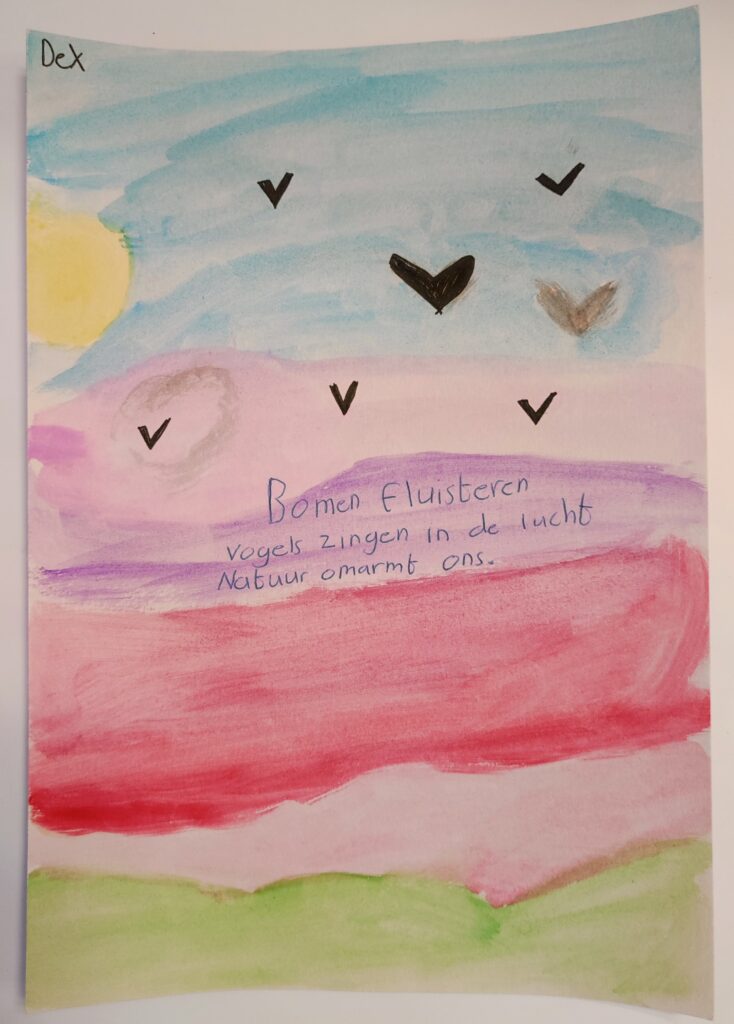 Dex
Bomen fluisteren
Vogels zingen in de lucht
Natuur omarmt ons.